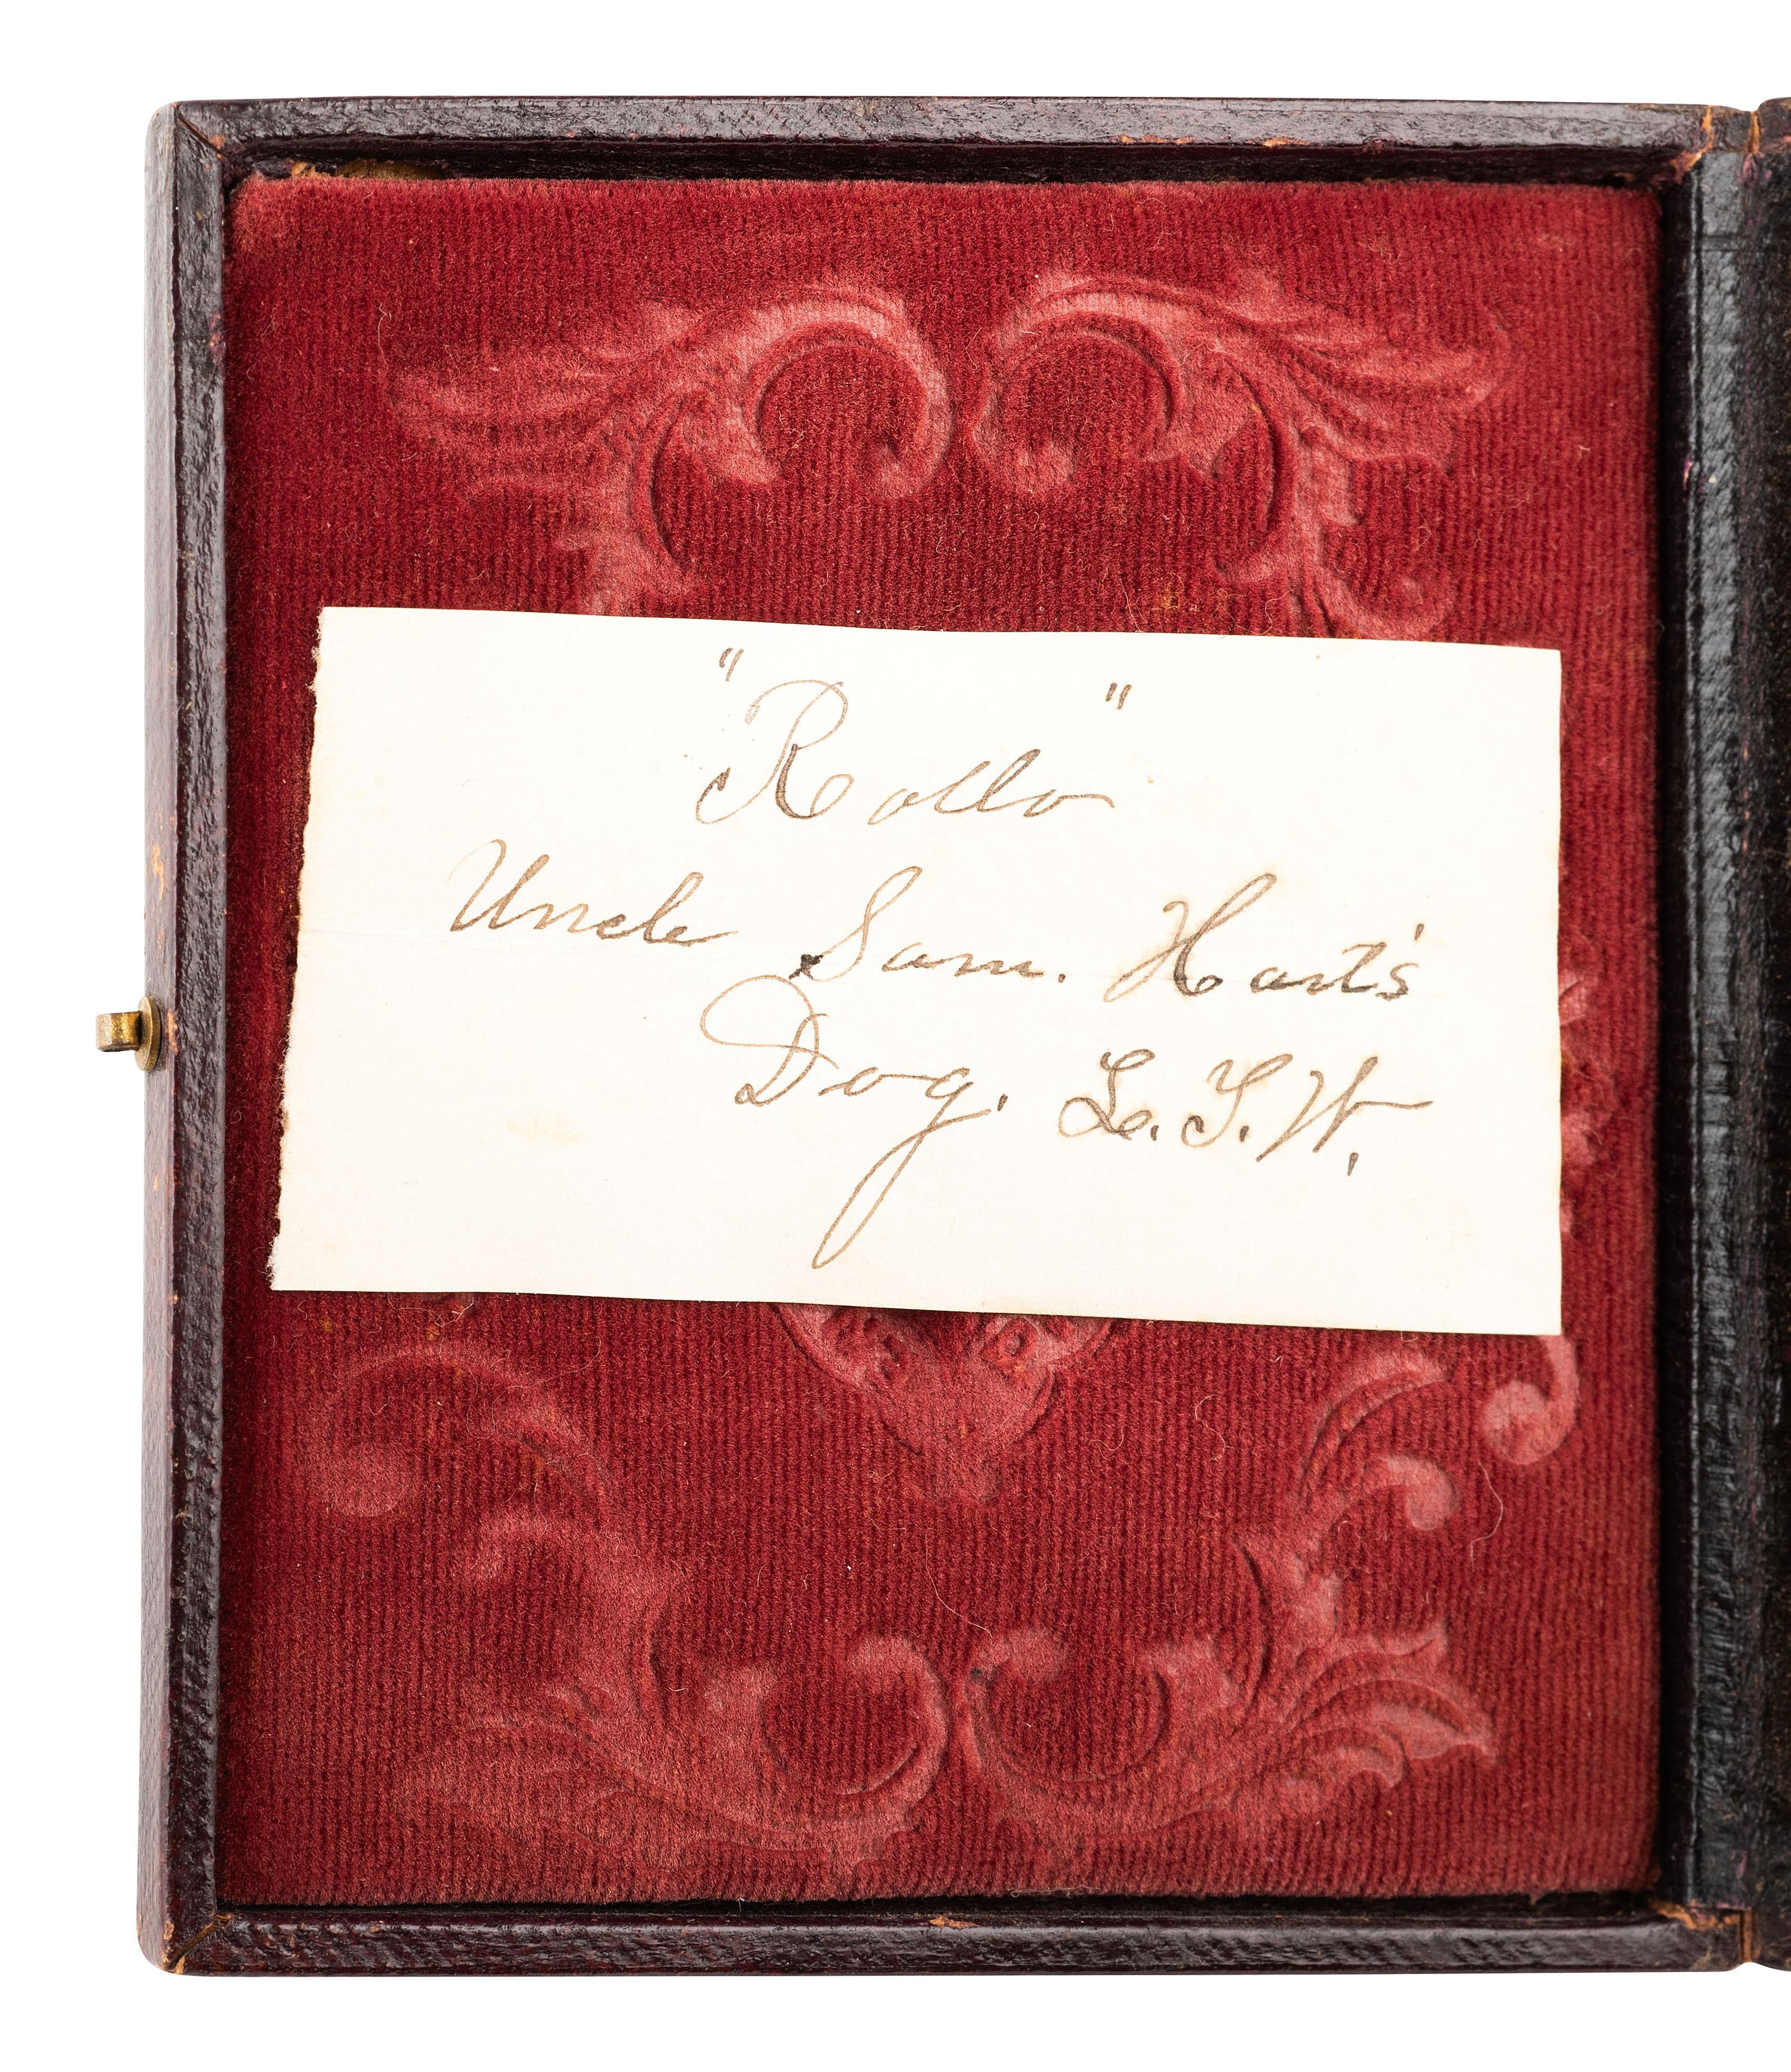 "Rollo"
Uncle Sam. Hart's
Dog. L.T.W.